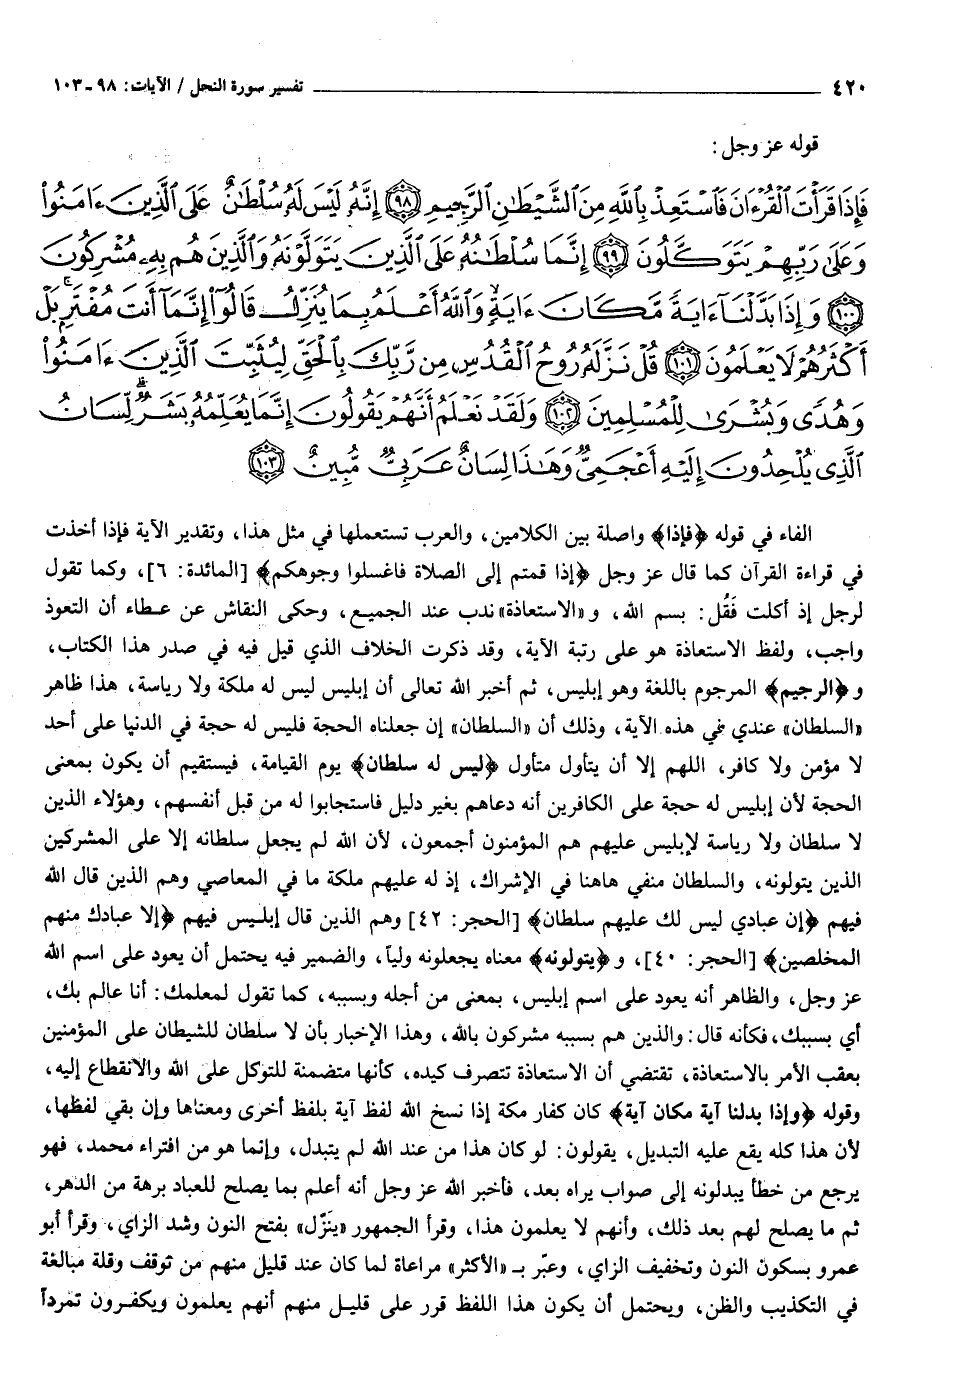 ٤٢٠ ــــــــــــــــــــ تفسير سورة النحل / الآيات: ٩٨ـ١٠٣
قوله عز وجل:
فَإِذَا قَرَأْتَ ٱلْقُرْءَانَ فَٱسْتَعِذْ بِٱللَّهِ مِنَ ٱلشَّيْطَٰنِ ٱلرَّجِيمِ ٩٨ إِنَّهُۥ لَيْسَ لَهُۥ سُلْطَٰنٌ عَلَى ٱلَّذِينَ ءَامَنُوا۟
وَعَلَىٰ رَبِّهِمْ يَتَوَكَّلُونَ ٩٩ إِنَّمَا سُلْطَٰنُهُۥ عَلَى ٱلَّذِينَ يَتَوَلَّوْنَهُۥ وَٱلَّذِينَ هُم بِهِۦ مُشْرِكُونَ
١٠٠ وَإِذَا بَدَّلْنَآ ءَايَةً مَّكَانَ ءَايَةٍ وَٱللَّهُ أَعْلَمُ بِمَا يُنَزِّلُ قَالُوٓا۟ إِنَّمَآ أَنتَ مُفْتَرٍۭ بَلْ
أَكْثَرُهُمْ لَا يَعْلَمُونَ ١٠١ قُلْ نَزَّلَهُۥ رُوحُ ٱلْقُدُسِ مِن رَّبِّكَ بِٱلْحَقِّ لِيُثَبِّتَ ٱلَّذِينَ ءَامَنُوا۟
وَهُدًى وَبُشْرَىٰ لِلْمُسْلِمِينَ ١٠٢ وَلَقَدْ نَعْلَمُ أَنَّهُمْ يَقُولُونَ إِنَّمَا يُعَلِّمُهُۥ بَشَرٌ لِّسَانُ
ٱلَّذِى يُلْحِدُونَ إِلَيْهِ أَعْجَمِىٌّ وَهَٰذَا لِسَانٌ عَرَبِىٌّ مُّبِينٌ ١٠٣
الفاء في قوله ﴿فإذا﴾ واصلة بين الكلامين، والعرب تستعملها في مثل هذا، وتقدير الآية فإذا أخذت
في قراءة القرآن كما قال عز وجل ﴿إذا قمتم إلى الصلاة فاغسلوا وجوهكم﴾ [المائدة: ٦]، وكما تقول
لرجل إذ أكلت فَقُل: بسم الله، و «الاستعاذة» ندب عند الجميع، وحكى النقاش عن عطاء أن التعوذ
واجب، ولفظ الاستعاذة هو على رتبة الآية، وقد ذكرت الخلاف الذي قيل فيه في صدر هذا الكتاب،
و ﴿الرجيم﴾ المرجوم باللغة وهو إبليس، ثم أخبر الله تعالى أن إبليس ليس له ملكة ولا رياسة، هذا ظاهر
«السلطان» عندي في هذه الآية، وذلك أن «السلطان» إن جعلناه الحجة فليس له حجة في الدنيا على أحد
لا مؤمن ولا كافر، اللهم إلا أن يتأول متأول ﴿ليس له سلطان﴾ يوم القيامة، فيستقيم أن يكون بمعنى
الحجة لأن إبليس له حجة على الكافرين أنه دعاهم بغير دليل فاستجابوا له من قبل أنفسهم، وهؤلاء الذين
لا سلطان ولا رياسة لإبليس عليهم هم المؤمنون أجمعون، لأن الله لم يجعل سلطانه إلا على المشركين
الذين يتولونه، والسلطان منفي هاهنا في الإشراك، إذ له عليهم ملكة ما في المعاصي وهم الذين قال الله
فيهم ﴿إن عبادي ليس لك عليهم سلطان﴾ [الحجر: ٤٢] وهم الذين قال إبليس فيهم ﴿إلا عبادك منهم
المخلصين﴾ [الحجر: ٤٠]، و ﴿يتولونه﴾ معناه يجعلونه ولياً، والضمير فيه يحتمل أن يعود على اسم الله
عز وجل، والظاهر أنه يعود على اسم إبليس، بمعنى من أجله وبسببه، كما تقول لمعلمك: أنا عالم بك،
أي بسببك، فكأنه قال: والذين هم بسببه مشركون بالله، وهذا الإخبار بأن لا سلطان للشيطان على المؤمنين
بعقب الأمر بالاستعاذة، تقتضي أن الاستعاذة تتصرف كيده، كأنها متضمنة للتوكل على الله والانقطاع إليه،
وقوله ﴿وإذا بدلنا آية مكان آية﴾ كان كفار مكة إذا نسخ الله لفظ آية بلفظ أخرى ومعناها وإن بقي لفظها،
لأن هذا كله يقع عليه التبديل، يقولون: لو كان هذا من عند الله لم يتبدل، وإنما هو من افتراء محمد، فهو
يرجع من خطأ يبدلونه إلى صواب يراه بعد، فأخبر الله عز وجل أنه أعلم بما يصلح للعباد برهة من الدهر،
ثم ما يصلح لهم بعد ذلك، وأنهم لا يعلمون هذا، وقرأ الجمهور «ينزّل» بفتح النون وشد الزاي، وقرأ أبو
عمرو بسكون النون وتخفيف الزاي، وعبّر بـ «الأكثر» مراعاة لما كان عند قليل منهم من توقف وقلة مبالغة
في التكذيب والظن، ويحتمل أن يكون هذا اللفظ قرر على قليل منهم أنهم يعلمون ويكفرون تمرداً